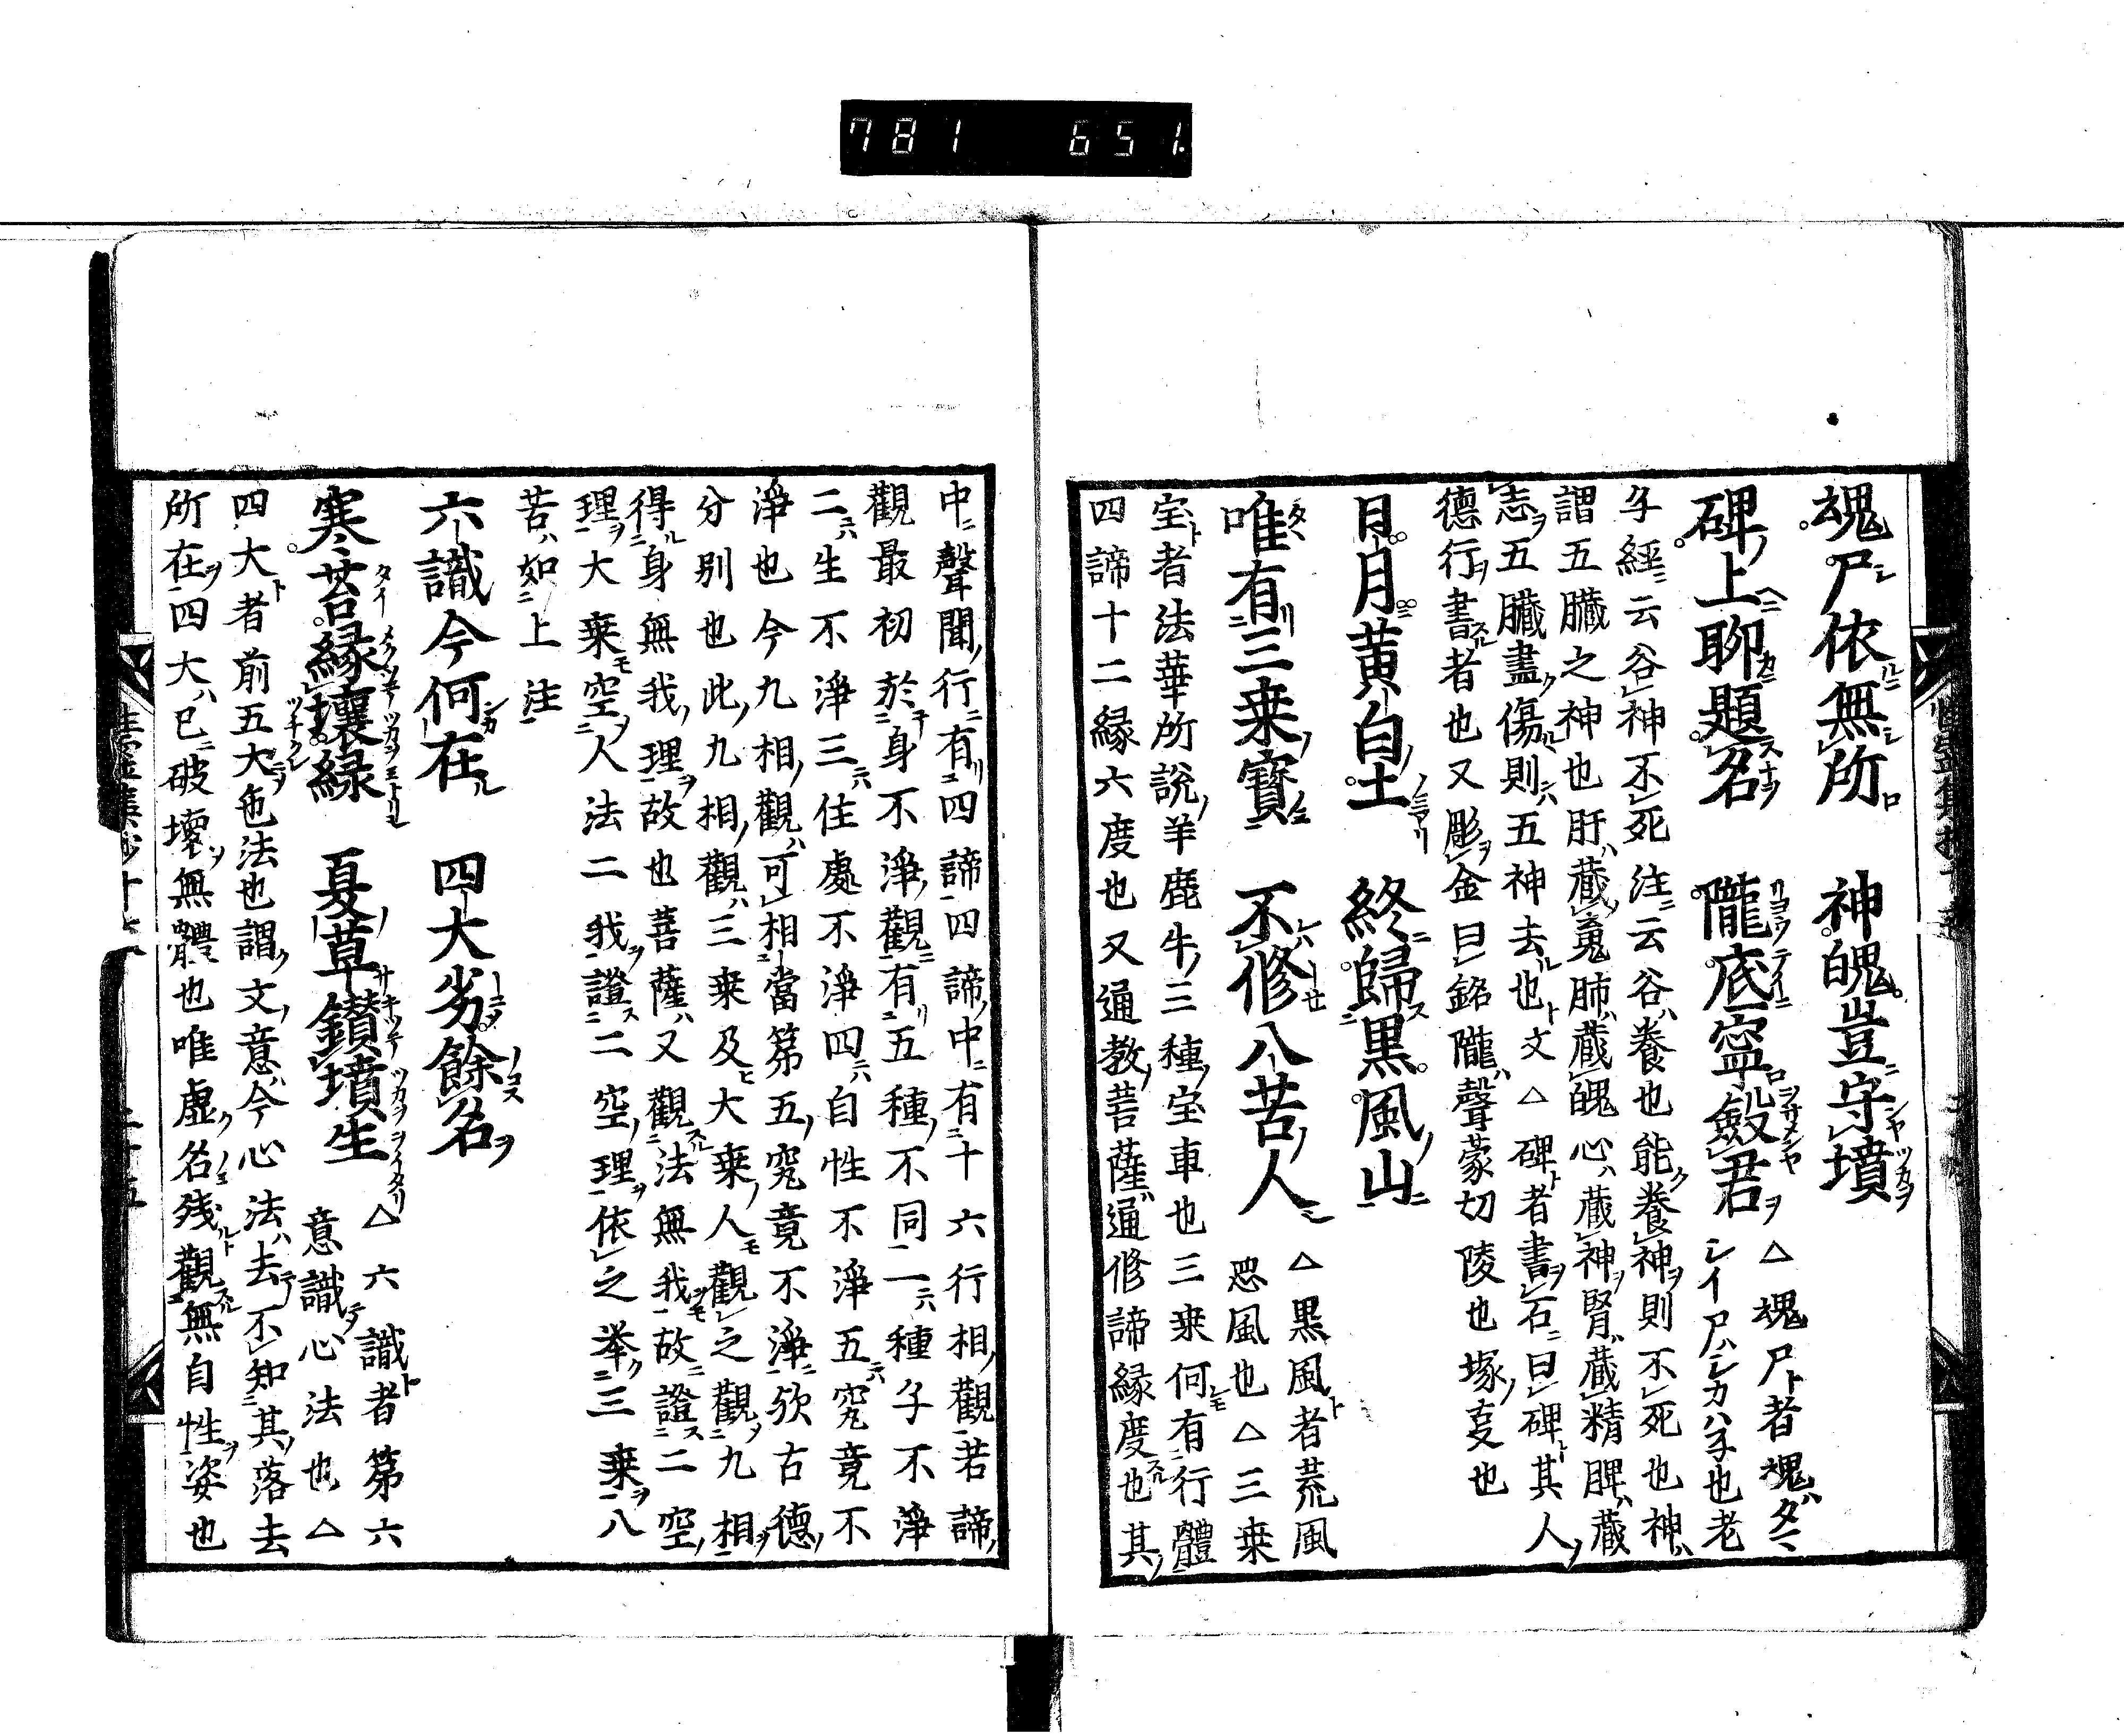 781 651
魂尸依無所 神魄豈守墳
碑上聊題名 隴底寧斂君 △魂尸ト者魂ハタマシイ尸ハシカハ子也老
子經云谷神不死注云谷ハ養也能養神則不死也神ハ
謂五臓之神也肝ハ蔵魂肺ハ蔵魄心ハ蔵神腎ハ蔵精脾ハ蔵
志五臓盡傷則五神去也文△碑ト者書石曰碑其人
德行書者也又彫金曰銘隴ハ聲蒙切陵也塚也
日月黄白土 終歸黒風山
唯有三乗寳 不修八苦人 △黒風ト者荒風
悪風也△三乗
宝ト者法華所說羊鹿牛三種宝車也三乗何有行體
四諦十二縁六度也又通教菩薩通修諦縁度也其
中聲聞行有四諦四諦中有十六行相觀若諦
觀最初於身不淨觀有五種不同一種子不淨
二生不淨三住處不淨四自性不淨五究竟不
淨也今九相觀ハ可相當第五究竟不淨欤古德
分別也此九相觀ハ三乗及大乗人觀之觀九相
得身無我理故也菩薩ハ又觀法無我故證二空
理大乗空人法二我證二空理依之挙三乗八
苦ハ如上注
六識今何在 四大劣餘名
寒苔縁壤緑 夏草鑚墳生 △六識者第六
意識心法也△
四大者前五大色法也謂文意ハ今心法ハ去不知其落去
所在四大ハ已破壞無體也唯虚名残觀無自性姿也